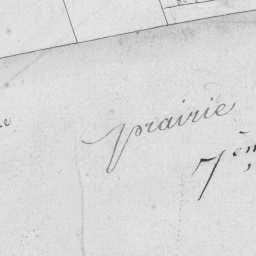 prairie
7èm